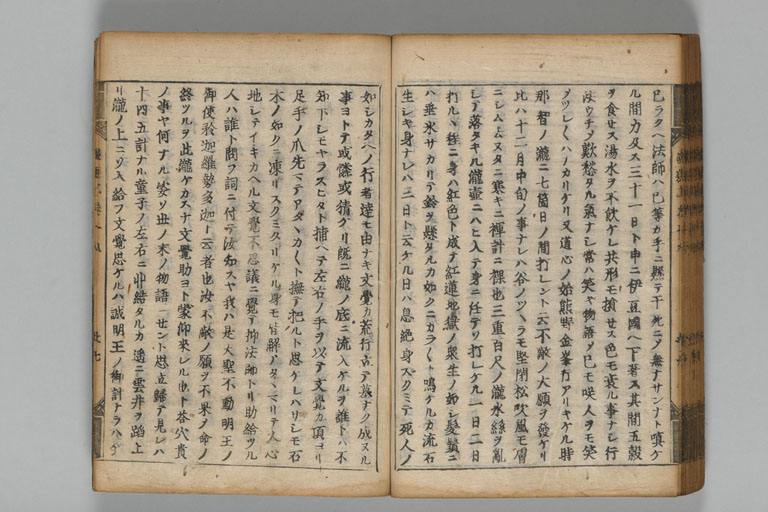 ラクハ法師ハ已等カ手ニ懸テ干死ニハ無ナサンナト嗔ケ
ル間力及ス三十一日ト申ニ伊豆國ヘ下著ス其間五穀
ヲ食セス湯水ヲ不飲ケレ共形モ損セス色モ衰ル事ナシ行
歎愁タル氣ナシ常ハ笑ヤ物語ヲモ咲人ヲモ笑
ツレ〳〵ハナカリケリ又道心ノ始熊野金峯行アリキケル時
那智ノ瀧ニ七箇日ノ間打レント云不敵ノ大願ヲ發ケリ
比ハ十二月中旬ノ事ナレハ谷ノツヽラモ堅閉松吹風モ膚
ニシム寒キニ褌計ニ裸也三重百尺ノ瀧水絲ヲ亂
シテ落タキル瀧壷ニハヒ入テ身ニ任テソ打レケル一日二日
打ルヽ程ニ身ハ紅色ト成テ紅蓮地獄ノ衆生ノ如シ髪鬚ニ
ハ垂氷サカリテ鈴ヲ懸タルカ如クニカラ〳〵ト鳴ケルカ流石
生シキ身ナレハ三日ト云ケル日ハ息絶身スクミテ死人ノ
如シカタヘノ行者達モ由ナキ文覺カ荒行立テ墓ナク成ヌル
事ヨトテ或憐或猜ケリ既ニ瀧ノ底ニ流入ケルヲ誰トハ不
知下シモヤラスヒタト捕ヘテ左右ノ手ヲ以テ文覺カ頂ヨリ
足手ノ爪先マテアタヽカ〳〵ト撫テ把ルト思ケレハリシモ石
木ノ如クニ凍リスクミタリケル身モ皆解アタヽマリテ人心
地シテイキカヘル文覺不思議ニ覺テ抑法師トリ助給ツル
人ハ誰ト問ヲ詞ニ付テ汝知スヤ我ハ是大聖不動明王ノ
御使矜迦羅勢多迦ト云者也汝不敵ノ願ヲ不果メ命ノ
終ツルヲ此瀧ケカスナ文覺助ヨト蒙仰來レル也ト答穴貴
ノ事ヤ何ナル姿ソ世ノ末ノ物語ニセント思立歸テ見レハ
十四五計ナル童子ノ左右ニ丱結タルカ遙ニ雲井ヲ蹈上
リ瀧ノ上ニソ入給フ文覺思ケルハ誠明王ノ御計ナラハ